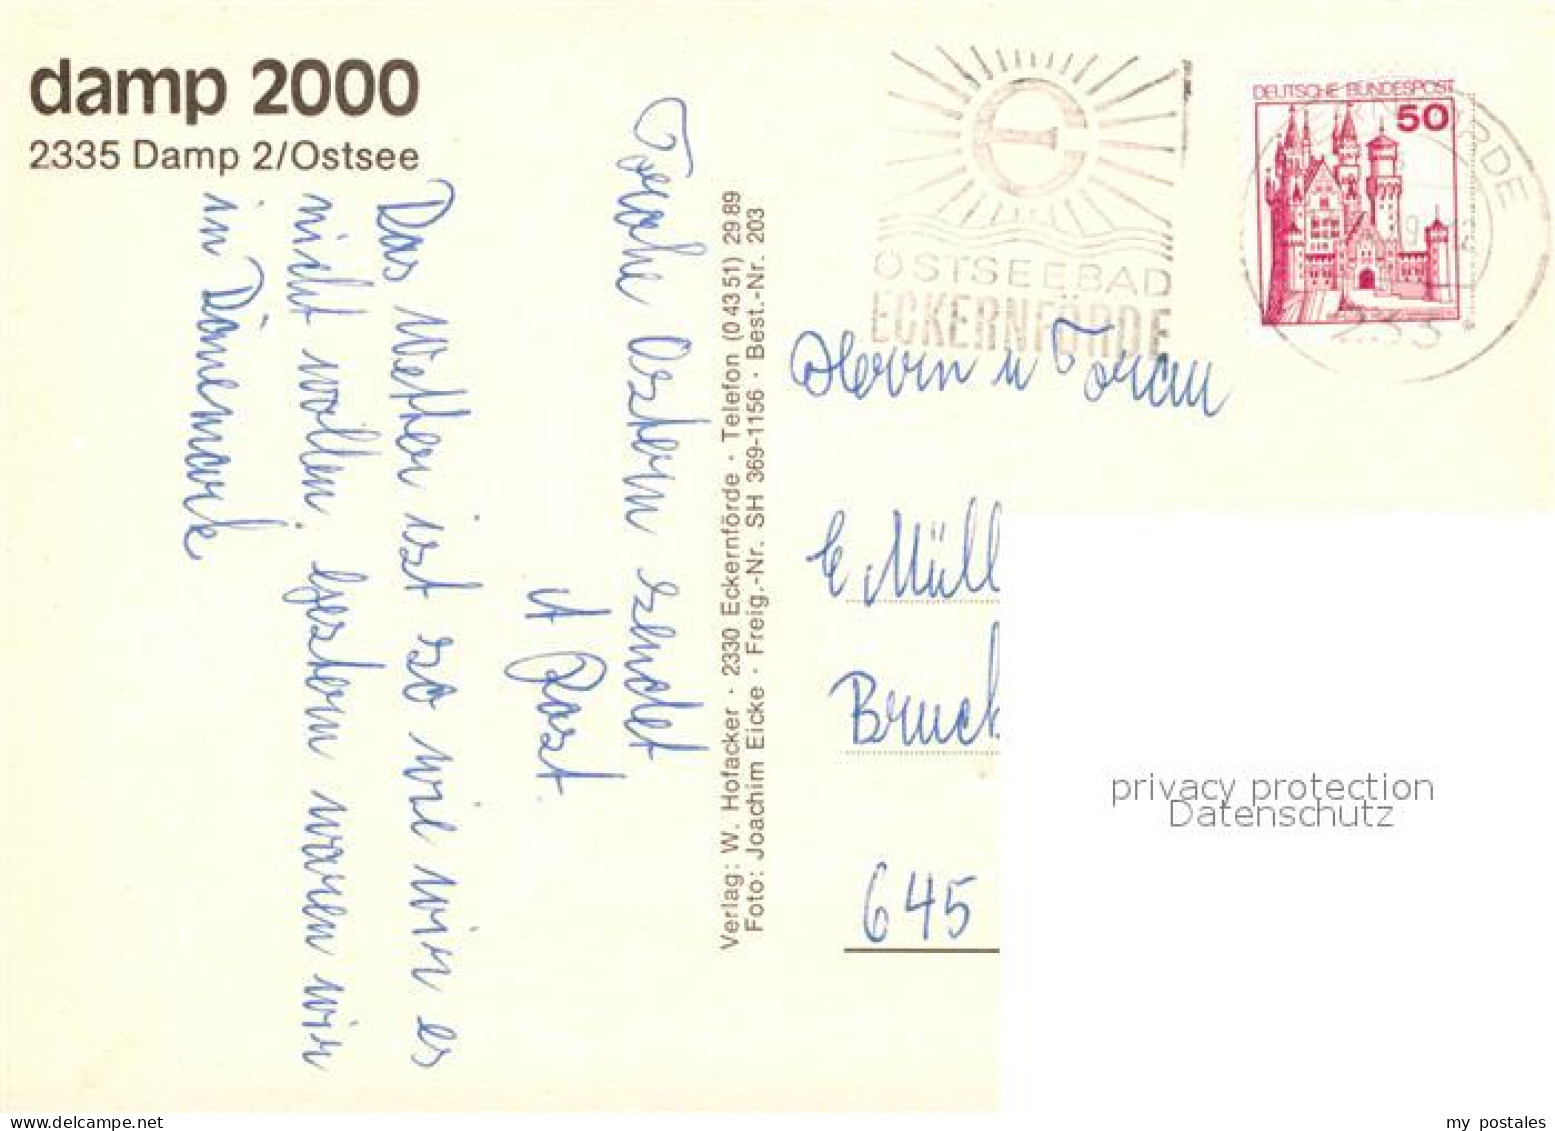 damp 2000
2335 Damp 2/Ostsee
Frohe Ostern sendet
A Rost
Das Wetter ist so wie wir es
nicht wollen. Gestern waren wir
in Dänemark
Verlag: W. Hofacker · 2330 Eckernförde · Telefon (0 43 51) 29 89
Foto: Joachim Eicke · Freig.-Nr. SH 369-1156 · Best.-Nr. 203
OSTSEEBAD
ECKERNFÖRDE
DEUTSCHE BUNDESPOST
50
Herrn u Frau
E Müll
Bruck
645
privacy protection
Datenschutz
my postales